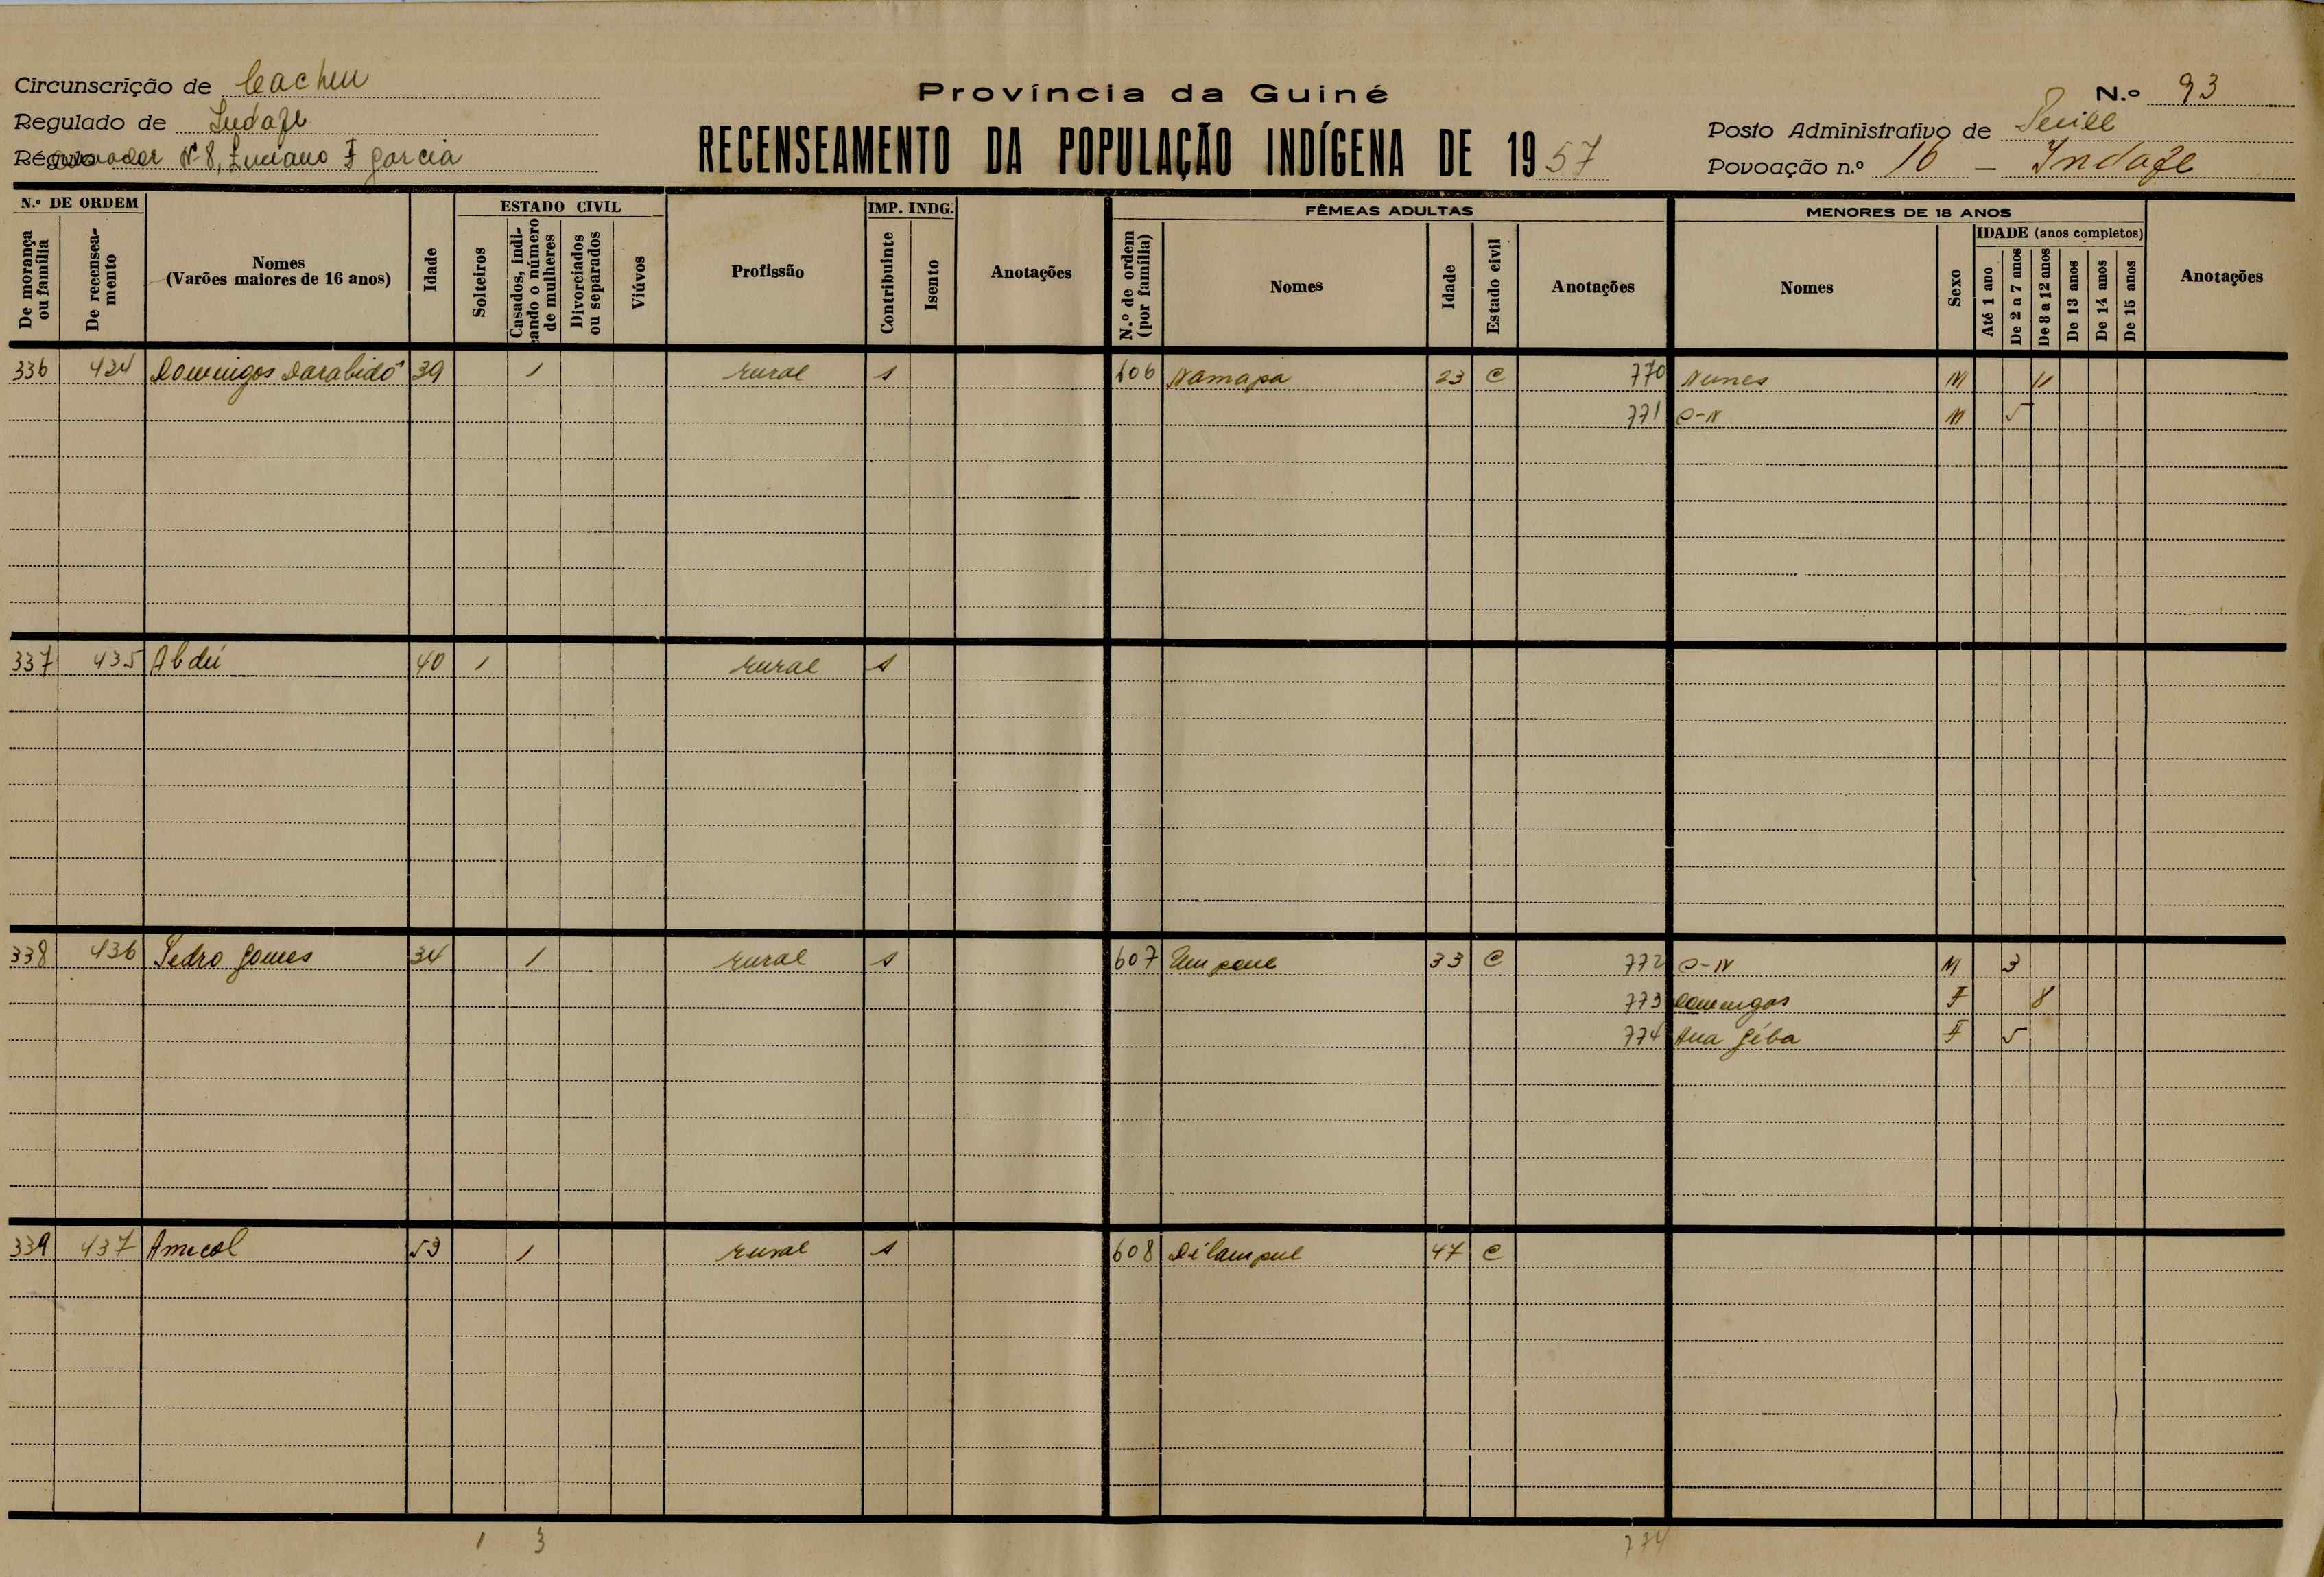 Circunscrição de Cacheu
Regulado de Indafe
Régulo Nº 8, Luciano F Garcia
Província da Guiné
RECENSEAMENTO DA POPULAÇÃO INDÍGENA DE 1957
N.º 93
Posto Administrativo de
Povoação n.º 16 - Indafe
N.º DE ORDEM
De morança ou família
De recenseamento
Nomes
(Varões maiores de 16 anos)
Idade
ESTADO CIVIL
Solteiros
Casados, indicando o número de mulheres
Divorciados ou separados
Viúvos
Profissão
IMP. INDG.
Contribuinte
Isento
Anotações
FÊMEAS ADULTAS
N.º de ordem (por família)
Nomes
Idade
Estado civil
Anotações
MENORES DE 18 ANOS
Nomes
Sexo
IDADE (anos completos)
Até 1 ano
De 2 a 7 anos
De 8 a 12 anos
De 13 anos
De 14 anos
De 15 anos
Anotações
336 434 Domingos Darabidó 39 1 rural s 606 Namapa 23 C 770 Nunes M 11
771 S-N M 5
337 435 Abdú 40 1 rural s
338 436 Pedro Gomes 34 1 rural s 607 33 C 772 S-N M 3
773 Domingas F 8
774 Ana Géba F 5
339 437 Amecol 53 1 rural s 608 47 C
1 3 774